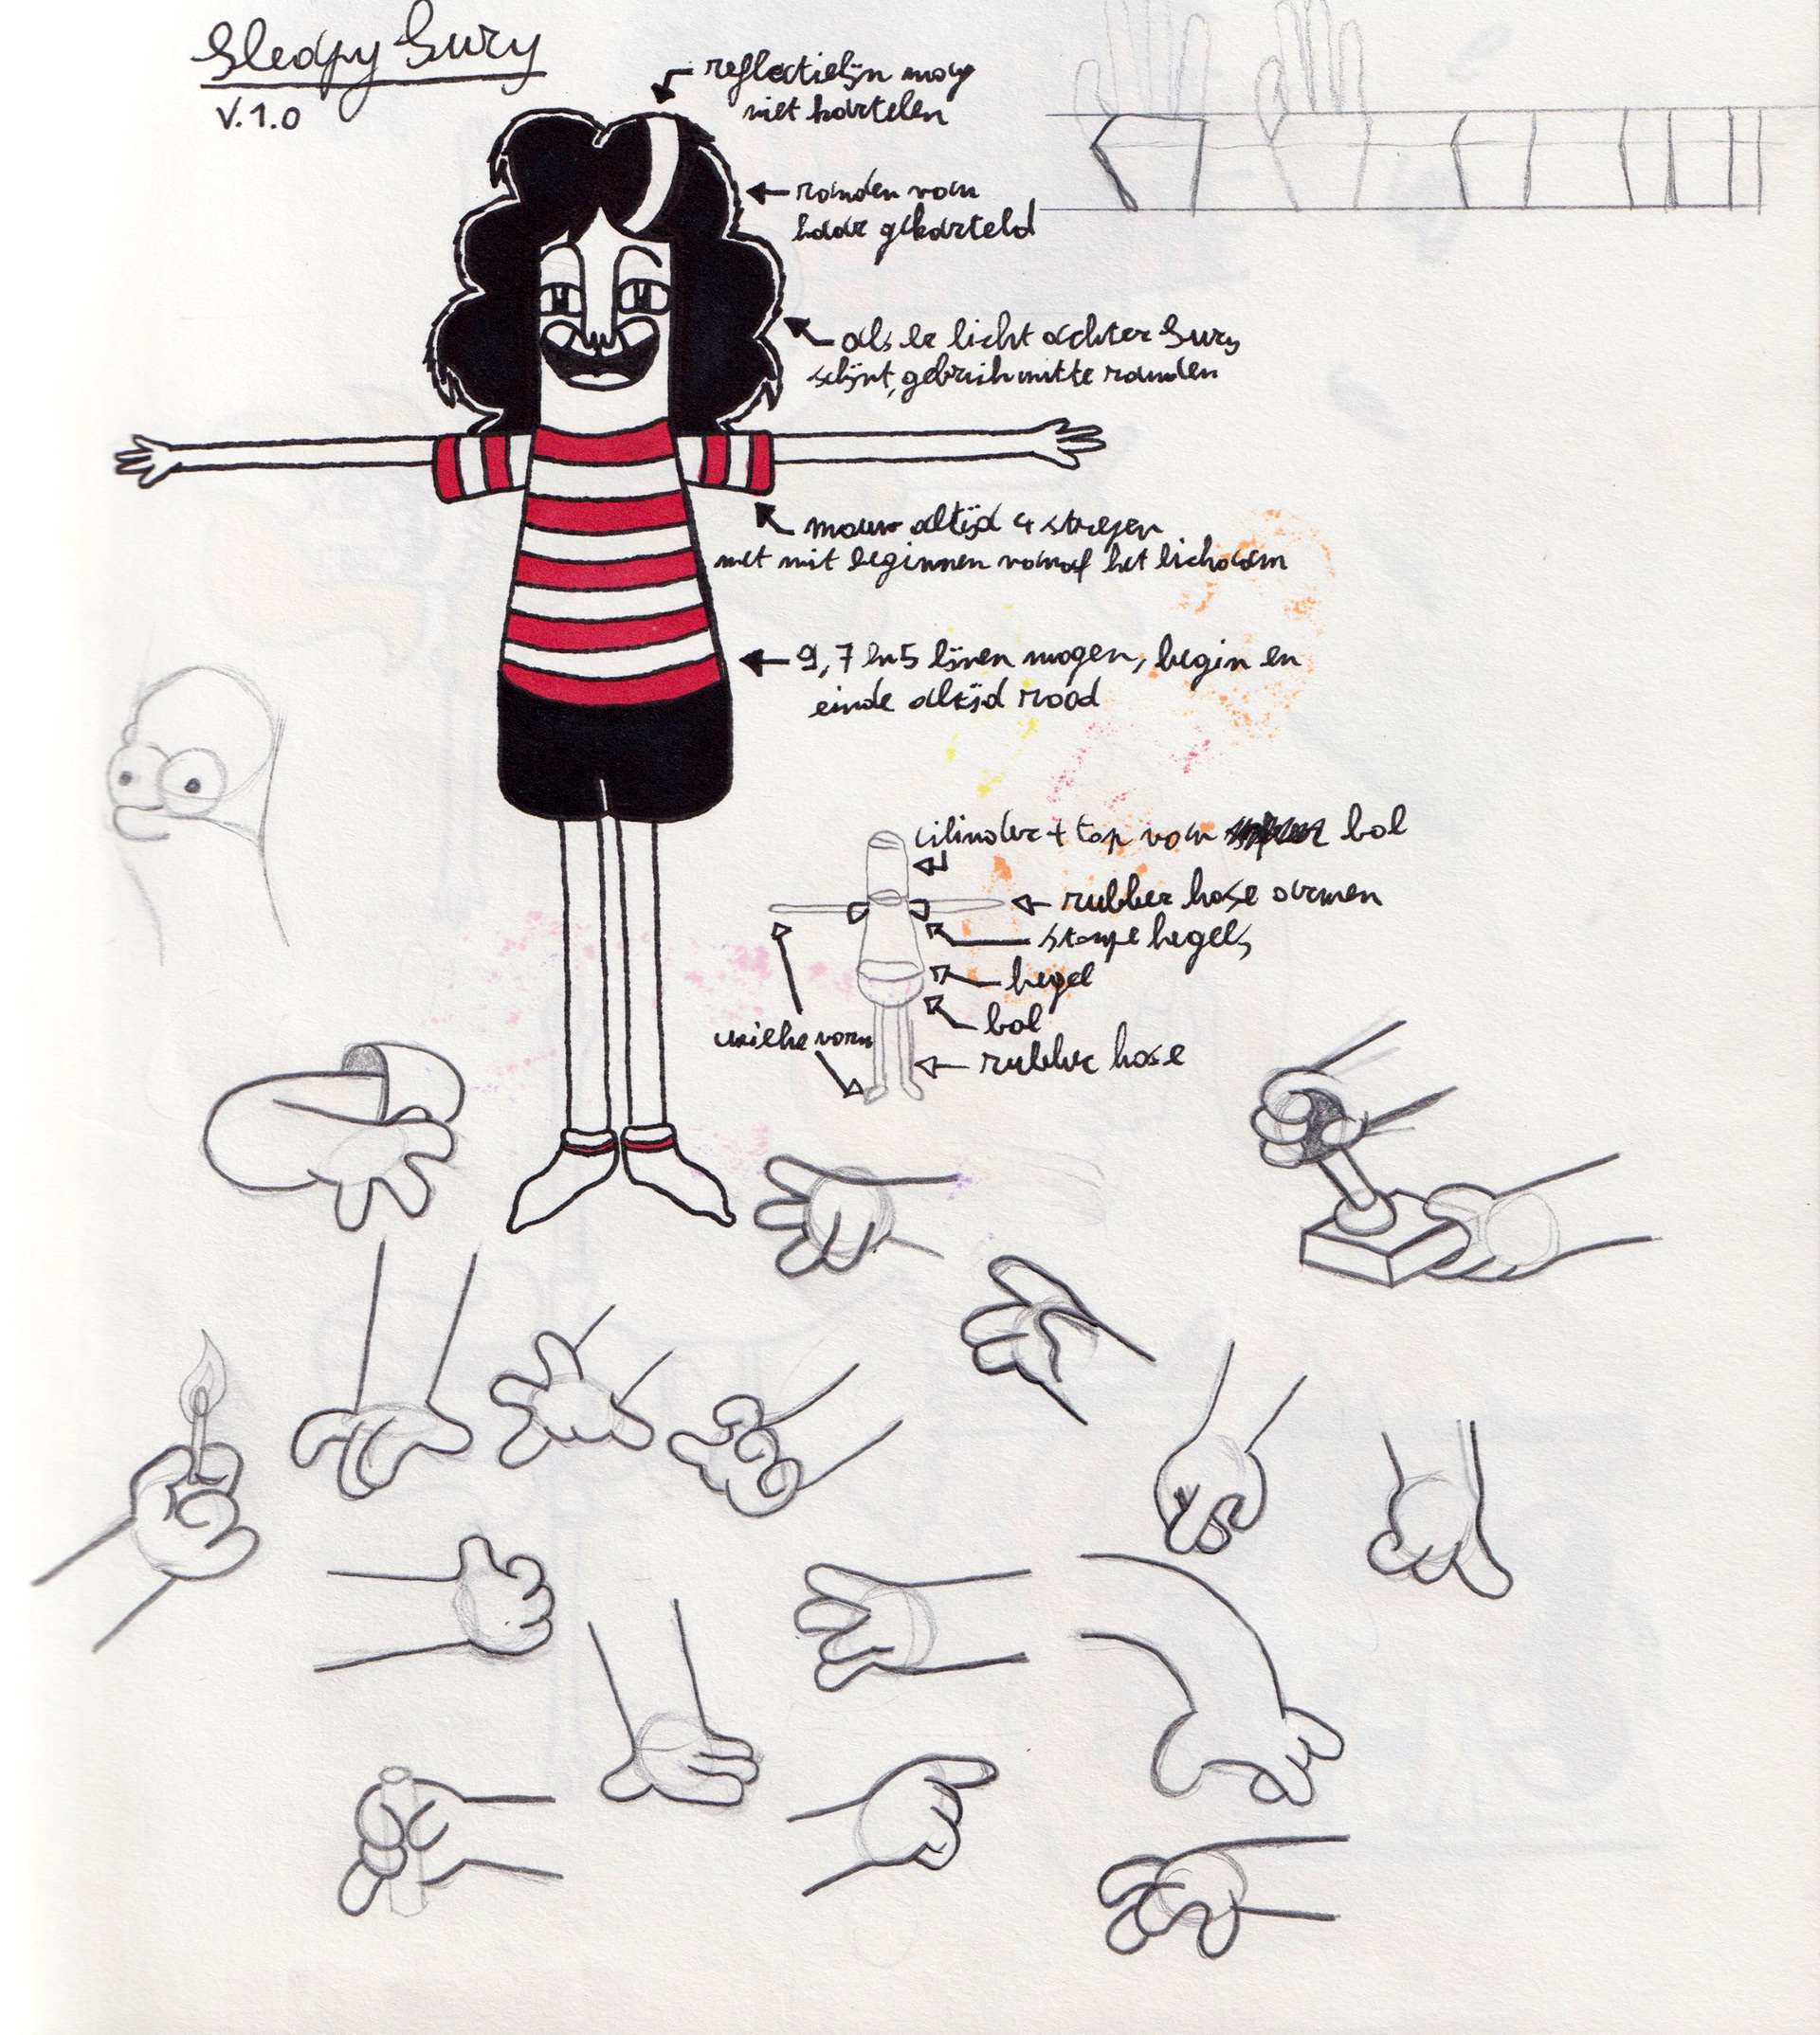 Sleapy Sury
V.1.0
reflectielijn mag
niet kartelen
randen van
haar gekarteld
als er licht achter Sury
schijnt, gebruik witte randen
mouw altijd 4 strepen
met wit beginnen vanaf het lichaam
9, 7 en 5 lijnen mogen, begin en
einde altijd rood
cilinder + top van bol
rubber hose armen
stompe kegels
kegel
bol
rubber hose
vorm